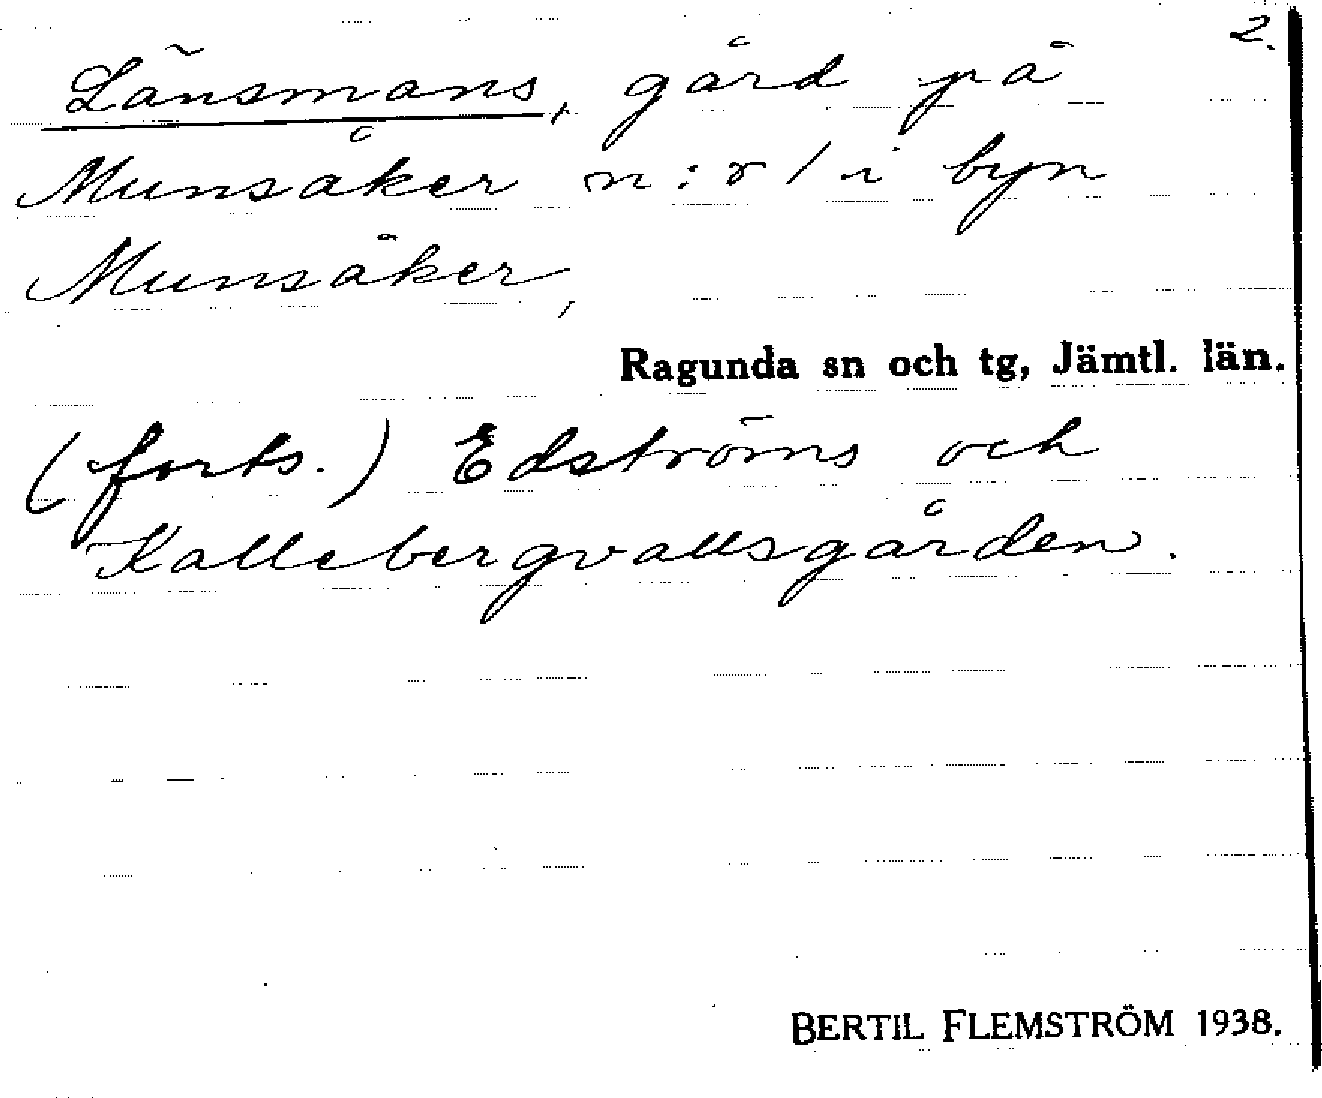 2.
Länsmans, gård på
Munsåker n:r 1 i byn
Munsåker,
Ragunda sn och tg, Jämtl. län.
(forts.) Edströms och
Kallebergvallsgården.
BERTIL FLEMSTRÖM 1938.